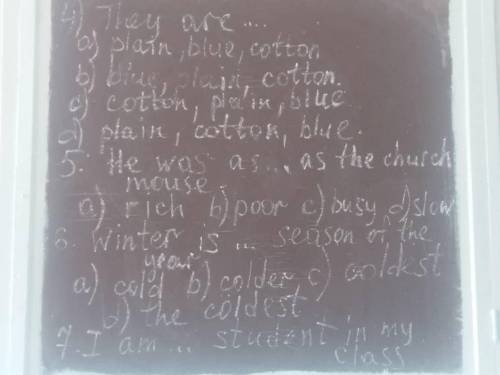 4) They are ....
a) plain, blue, cotton
b) blue, plain, cotton.
c) cotton, plain, blue
d) plain, cotton, blue.
5. He was as ... as the church
mouse.
a) rich b) poor c) busy d) slow
6. Winter is ... season of the
year
a) cold b) colder c) coldest
d) the coldest
7. I am ... student in my
class